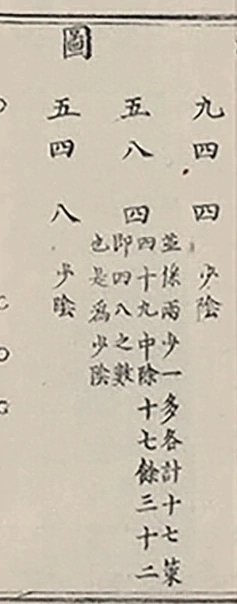 圖
九四四 少陰
五八四
並係兩少一多各計十七策
四十九中除十七餘三十二
即四八之數
也是爲少陰
五四八 少陰